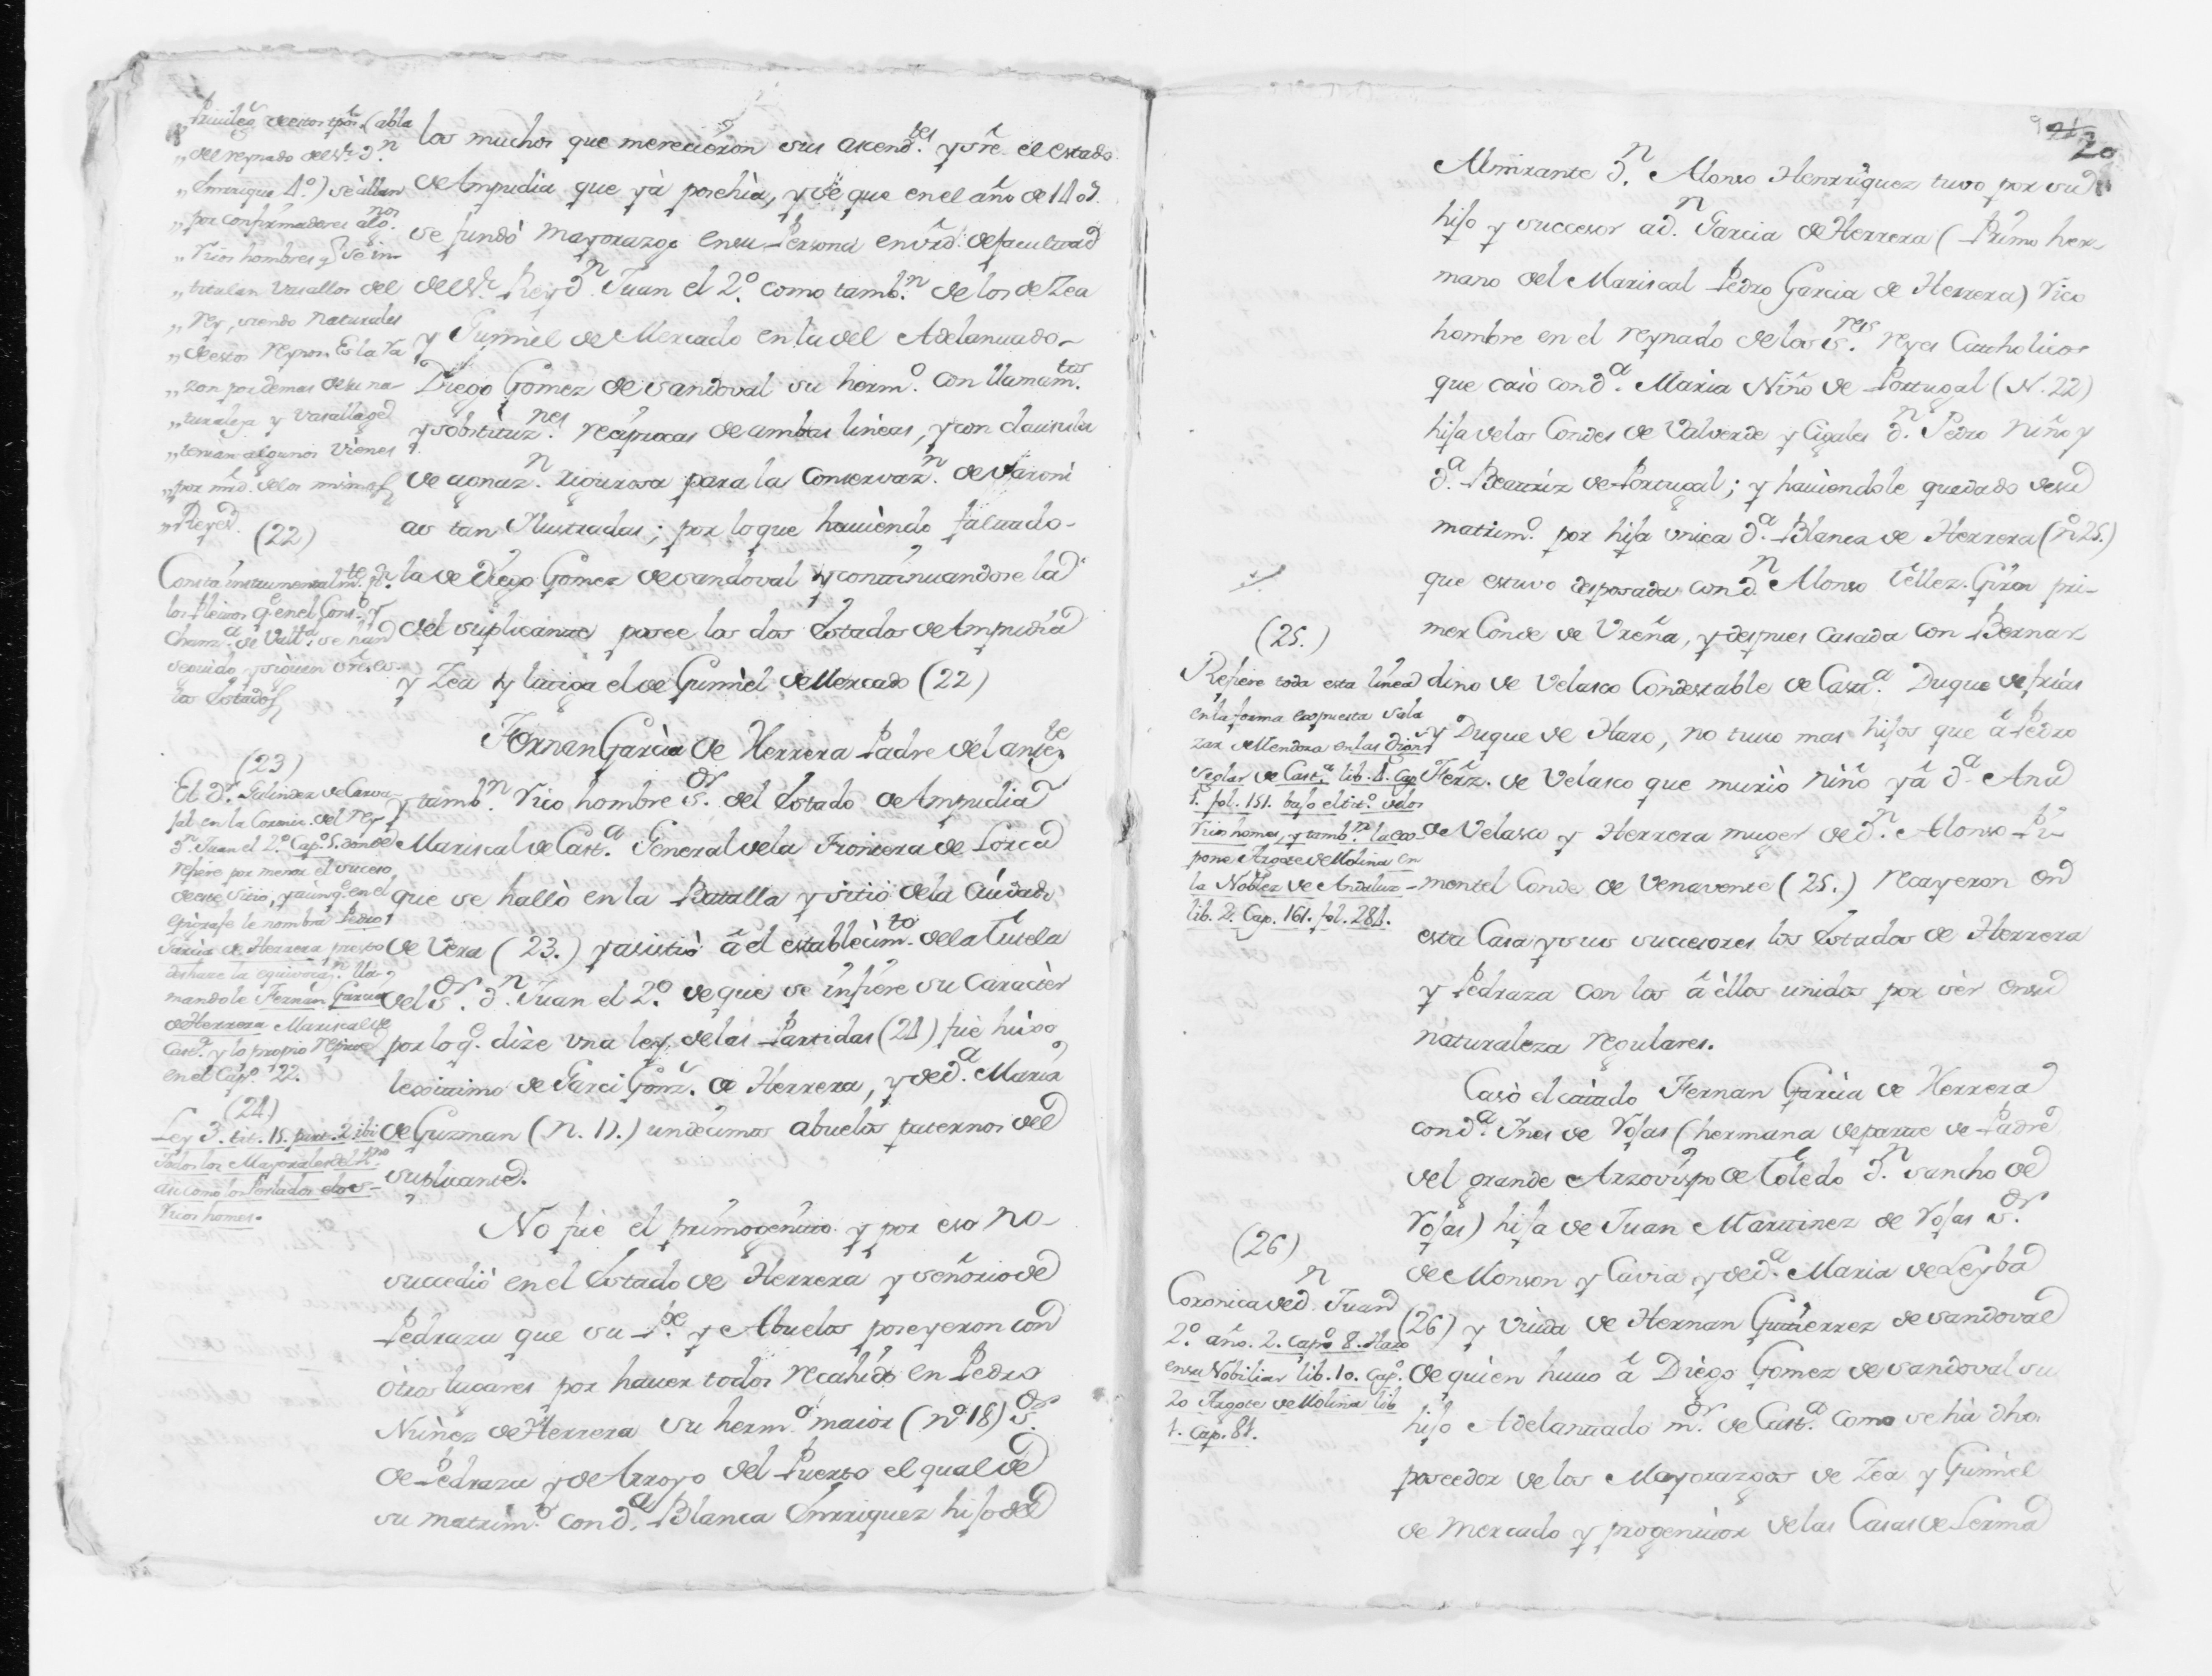 Privileg.s de estos tpos. (abla
„ del reynado del Sr. Dn.
„ Enrrique 4º.) se àllan
„ por confirmadores algs.
„ Ricos hombres q se in-
„ titulan Vasallos del
„ rey, siendo naturales
„ de estos reynos. Es la ra
„ zon por demas de su na-
„ turaleza y vasallage
„ tenian algunos vienes
„ por mrd. de los mismos
„ Reyes.
(22)
Consta instrumentalmte. pr.
los Pleitos q.e en el Consº. y
Chanz.a de Vall.d se han
seguido y siguen sre. es-
tos Estados
(23)
El Dr. Galindez de Carva-
jal en la Coronic. del Rey
Dn. Juan el 2º. Cap.º 5. donde
refiere por menor el suceso
de este sitio, y aunq.e en el
epigrafe le nombra Pedro
Garcia de Herrera presto
deshaze la equivocaz.n lla-
mandole Fernan Garcia
de Herrera Mariscal de
Cast.a y lo propio repite
en el Cap.º 22.
(24)
Ley 3. tit. 15. part. 2. ibi
Todos los Mayorales del
asi como los Perlados e los
Ricos homes.
los muchos que merecieron sus ascend.tes y sre. el estado
de Ampudia que yà poséhia, y de que en el año de 140.
se fundò Mayorazgo en su Persona en vrd. de facultad
del Sr. Rey Dn. Juan el 2º. como tamb.n de los de Zea
y Gumièl de Mercado en la del Adelantado
Diego Gomez de Sandoval su herm.º con llamam.tos
y sobstituz.nes reciprocas de ambas lineas, y con clausula
de agnaz.n rigurosa para la Conservaz.n de Varoni
as tan Ilustradas; por lo que haviendo faltado
la de Diego Gomez de Sandoval y continuandose la
del suplicante posee los dos Estados de Ampudia
y Zea y litiga el de Gumièl de Mercado (22)
Fernan Garcia de Herrera Padre del antec.te
y tamb.n Rico hombre Sor. del Estado de Ampudia
Mariscal de Cast.a General de la Frontera de Lorca
que se hallò en la Batalla y sitio de la Ciudad
de Vera (23.) y asistiò à el establecim.to de la Tutela
del Sor. Dn. Juan el 2º. de que se infiere su Caracter
por lo q.e dize una ley de las Partidas (24) fuè hixo
legitimo de Garci Gonz. de Herrera, y de D.a Maria
de Guzman (N. 17.) undecimos abuelos paternos del
suplicante.
No fuè el primogenito y por eso no
succediò en el Estado de Herrera y señorio de
Pedraza que su P.e y Abuelos poseyeron con
otros lugares por haver todos recahido en Pedro
Nuñez de Herrera su herm.º maior (nº 18) Sor.
de Pedraza y de Arroyo del Puerto el qual de
su matrim.º con D.a Blanca Enrriquez hija del
20
Almirante Dn. Alonso Henrriquez tuvo por su
hijo y succesor a Dn. Garcia de Herrera (Primo her-
mano del Mariscal Pedro Garcia de Herrera) rico
hombre en el reynado de los S.res reyes Catholicos
que casò con D.a Maria Niño de Portugal (N. 22)
hija de los Condes de Valverde y Cigales Dn. Pedro Niño y
D.a Beatriz de Portugal; y haviendole quedado de su
matrim.º por hija unica D.a Blanca de Herrera (nº 25.)
que estuvo desposada con Dn. Alonso Tellez Giron pri-
mer Conde de Ureña, y despues casada con Bernar
dino de Velasco Condestable de Cast.a Duque de frias
y Duque de Haro, no tuvo mas hijos que à Pedro
Ferrz. de Velasco que muriò niño y à D.a Ana
de Velasco y Herrera muger de Dn. Alonso Pi-
mentel Conde de Venavente (25.) recayeron en
esta Casa y sus succesores los Estados de Herrera
y Pedraza con los à èllos unidos por sèr en su
naturaleza regulares.
(25.)
Refiere toda esta linea
en la forma expuesta Sala
zar de Mendoza en las Dign.s
seglar de Cast.a lib. 4. Cap.
1. fol. 151. bajo el tit.º de los
Ricos homes, y tamb.n la ex-
pone Argote de Molina en
la Noblez. de Andaluz
lib. 2. Cap. 161. fol. 284.
Casò el citado Fernan Garcia de Herrera
con D.a Ines de Rojas (hermana de parte de Padre
del grande Arzovispo de Toledo Dn. Sancho de
Rojas) hija de Juan Martinez de Rojas Sor.
de Monson y Cavia y de D.a Maria de Leyba
(26) y viuda de Hernan Gutierrez de Sandoval
de quièn huvo à Diègo Gomez de Sandoval su
hijo Adelantado m.or de Cast.a como se hà dho.
poseedor de los Mayorazgos de Zea y Gumièl
de Mercado y progenitor de las Casas de Lerma
(26)
Coronica de Dn. Juan
2º. año. 2. Cap.º 8. Haro
en su Nobiliar. lib. 10. Cap.º
20 Argote de Molina lib.
1. Cap. 81.